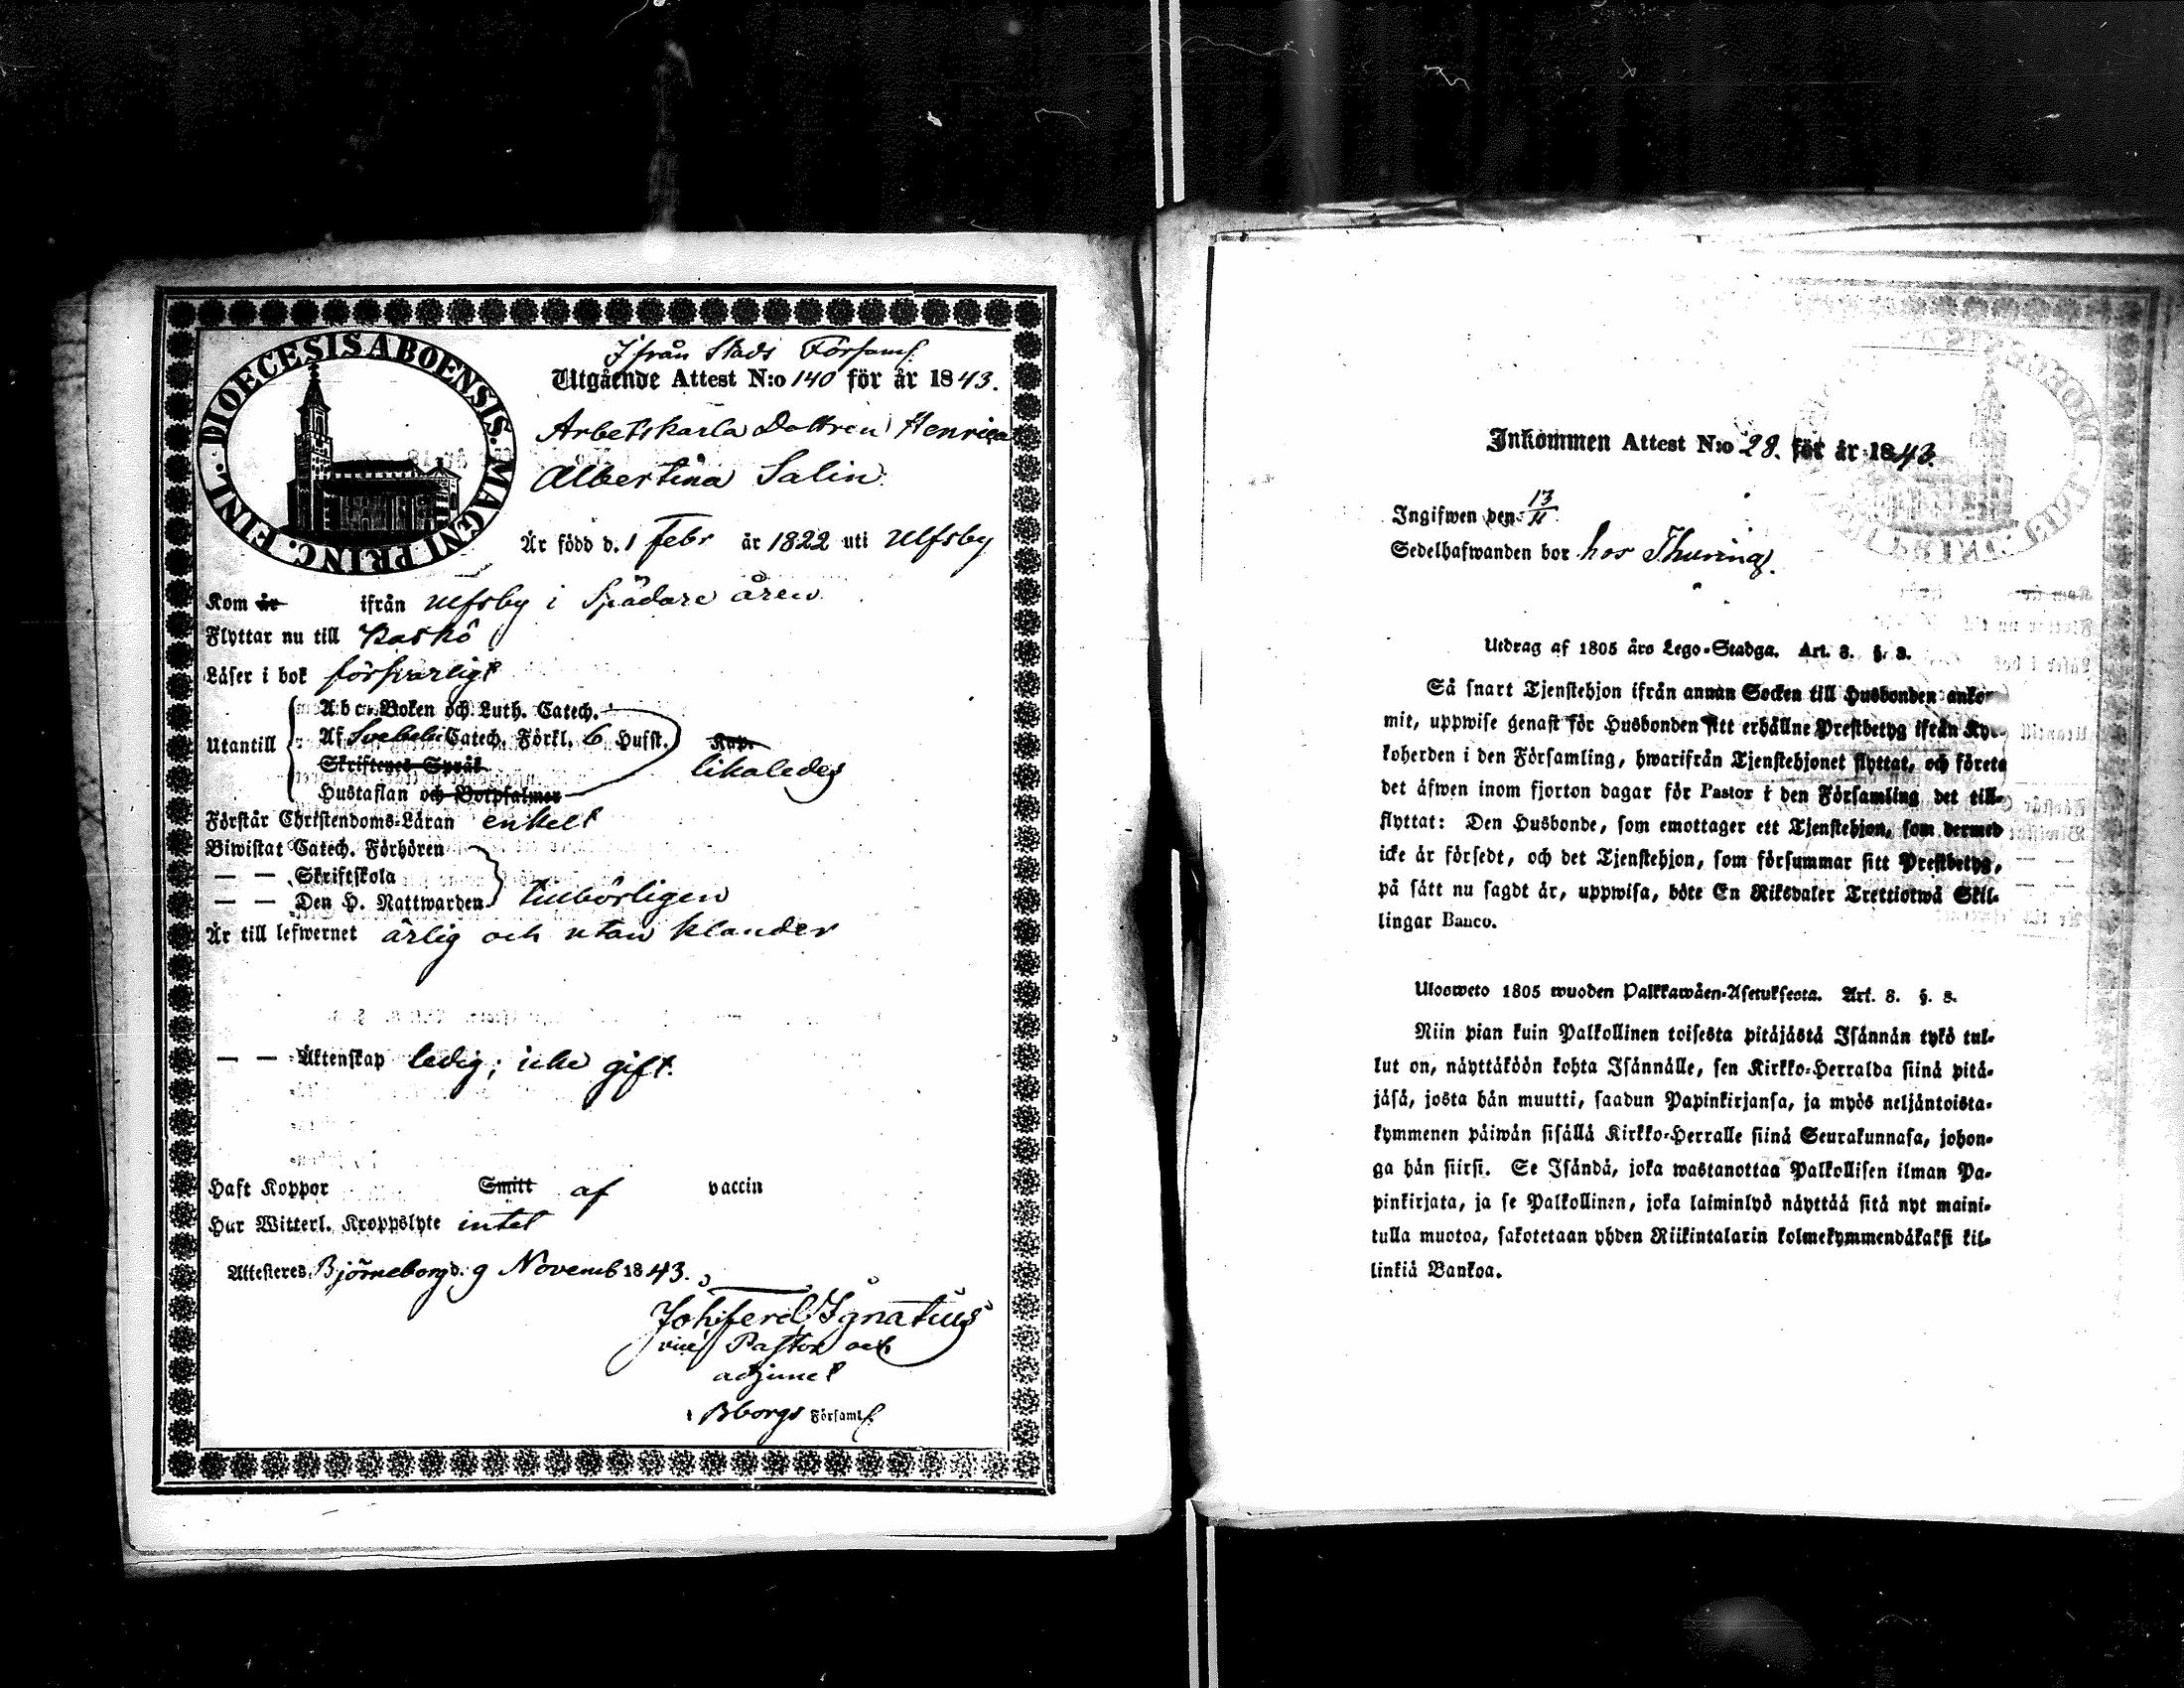 DIOECESIS ABOENSIS. MAGNI PRINC. FINL.
Ifrån Stads Församl.
Utgående Attest N:o 140 för år 1843.
Arbetskarls Dottren Henrica
Albertina Salin
Är född d. 1 Febr år 1822 uti Ulfsby
Kom år ifrån Ulfsby i Spädare åren
Flyttar nu till Kaskö
Läser i bok försvarligt
Abc-Boken och Luth. Catech.
Utantill Af Svebeli Catech. Förkl. 6 Hufst. Kap.
Skriftenes Språk likaledes
Hustaflan och Botpsalmer
Förstår Christendoms-Läran enkelt
Biwistat Catech. Förhören
— — Skriftskola
— — Den H. Nattwarden tillbörligen
Är till lefwernet ärlig och utan klander
— — Äktenskap ledig; icke gift.
Haft Koppor Smitt af vaccin
Har Witterl. Kroppslyte intet
Attesteras, Björneborg d. 9 Novemb 1843.
Joh. Ferd. Ignatius
vice Pastor och
adjunct
i Bborgs Församl.
Inkommen Attest N:o 28. för år 1843.
Ingifwen den 13/11
Sedelhafwanden bor hos Thuring.
Utdrag af 1805 års Lego-Stadga. Art. 3. §. 3.
Så snart Tjenstehjon ifrån annan Socken till Husbonden anko-
mit, uppwise genast för Husbonden sitt erhållne Prestbetyg ifrån Kyr-
koherden i den Församling, hwarifrån Tjenstehjonet flyttat, och förete
det äfwen inom fjorton dagar för Pastor i den Församling det till-
flyttat: Den Husbonde, som emottager ett Tjenstehjon, som dermed
icke är försedt, och det Tjenstehjon, som försummar sitt Prestbetyg,
på sätt nu sagdt är, uppwisa, böte En Riksdaler Trettiotwå Skil-
lingar Banco.
Ulosweto 1805 wuoden Palkkawäen-Asetuksesta. Art. 3. §. 3.
Niin pian kuin Palkollinen toisesta pitäjästä Isännän tykö tul-
lut on, näyttäköön kohta Isännälle, sen Kirkko-Herralda siinä pitä-
jäsä, josta hän muutti, saadun Papinkirjansa, ja myös neljäntoista-
kymmenen päiwän sisällä Kirkko-Herralle siinä Seurakunnasa, johon-
ga hän siirsi. Se Isändä, joka wastanottaa Palkollisen ilman Pa-
pinkirjata, ja se Palkollinen, joka laiminlyö näyttää sitä nyt maini-
tulla muotoa, sakotetaan yhden Riikintalarin kolmekymmendäkaksi kil-
linkiä Bankoa.